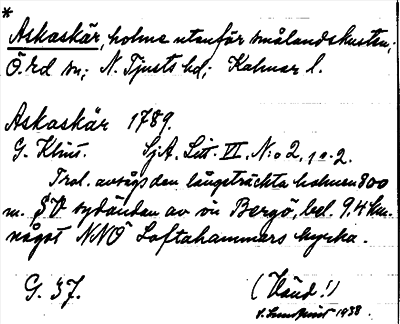 *
Askaskär, holme utanför smålandskusten;
Ö.rd sn; N. Tjusts hd; Kalmar l.
Askaskär 1789.
G. Klint. SjA. Litt. VI, N:o 2, 1 o. 2.
Trol. avsågs den långsträckta holmen 800
m. SV sydändan av ön Bergö, bel. 9.4 km.
något NNÖ Loftahammars kyrka.
G. 37. (Vänd!)
1938.